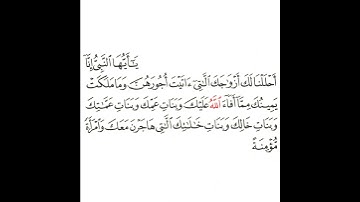 يَٰٓأَيُّهَا ٱلنَّبِىُّ إِنَّآ
أَحْلَلْنَا لَكَ أَزْوَٰجَكَ ٱلَّٰتِىٓ ءَاتَيْتَ أُجُورَهُنَّ وَمَا مَلَكَتْ
يَمِينُكَ مِمَّآ أَفَآءَ ٱللَّهُ عَلَيْكَ وَبَنَاتِ عَمِّكَ وَبَنَاتِ عَمَّٰتِكَ
وَبَنَاتِ خَالِكَ وَبَنَاتِ خَٰلَٰتِكَ ٱلَّٰتِى هَاجَرْنَ مَعَكَ وَٱمْرَأَةً
مُّؤْمِنَةً